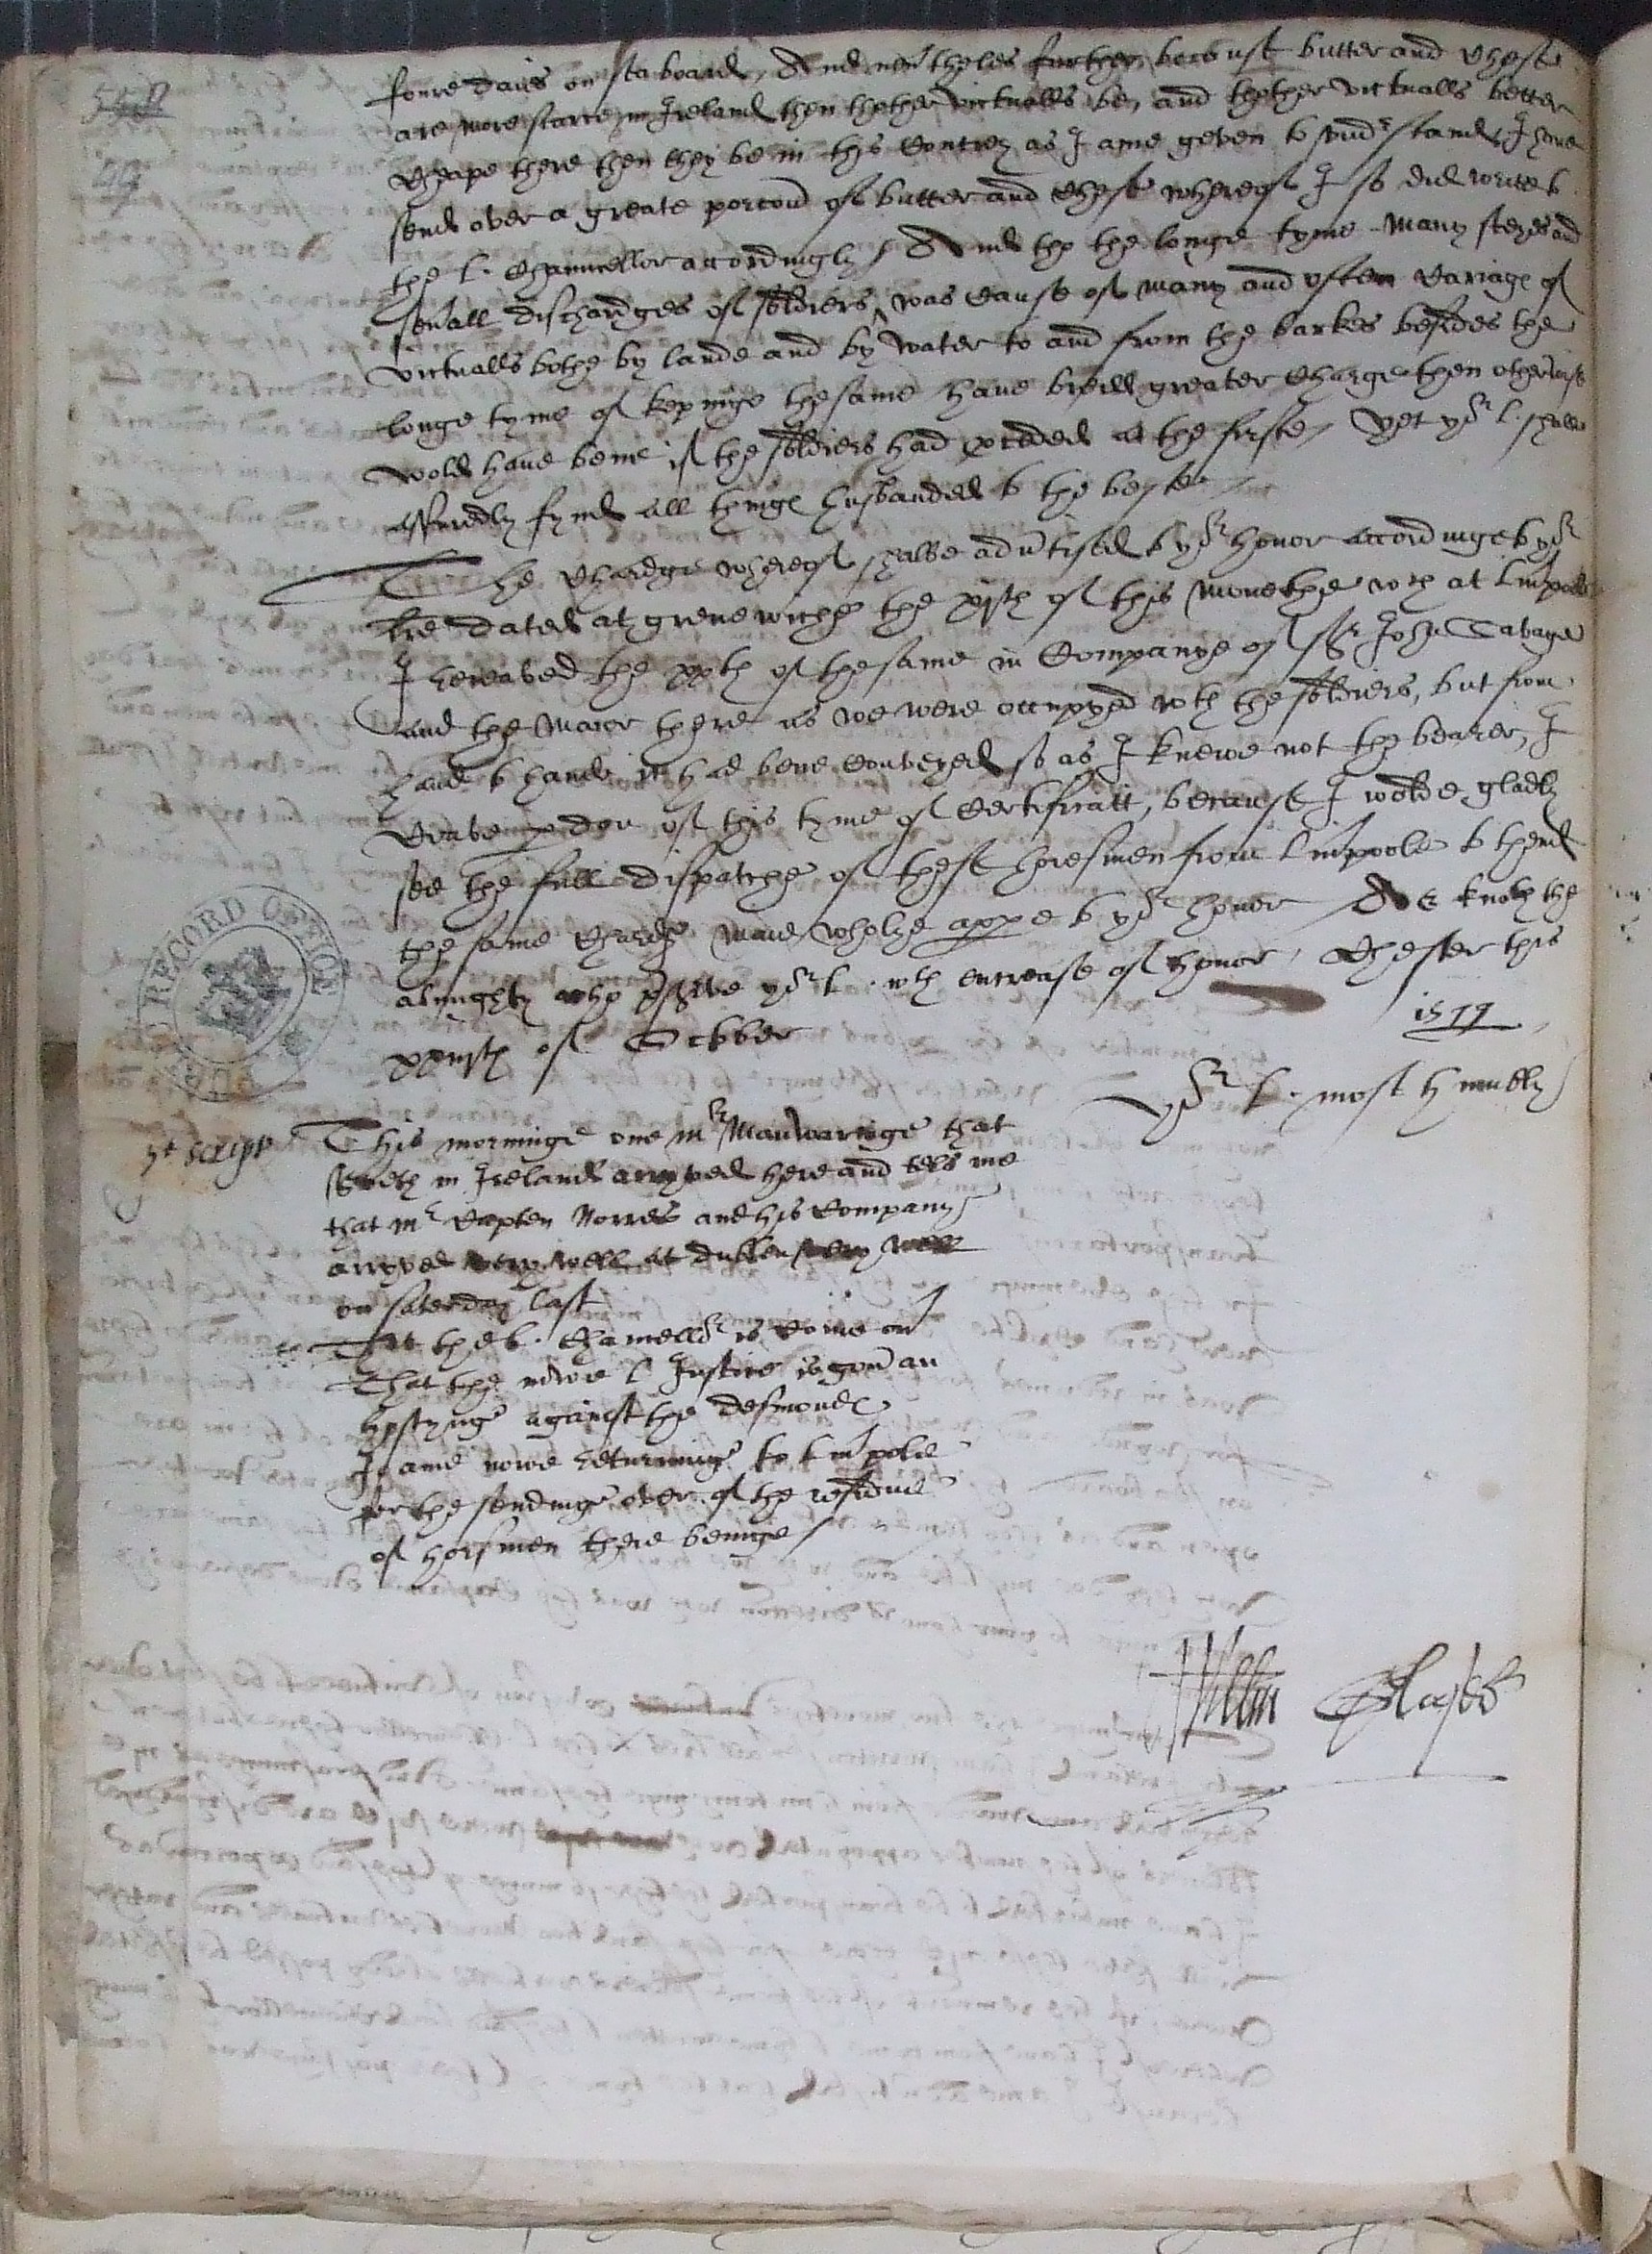 foure daies on sea board, And nev'theles further because butter and chese
are more scarce in Ireland then thother victualls be, and thother victualls better
Cheape there then they be in this Contrey as I ame geven to vnd'stand, I have
send over a greate porcoun of butter and chese whereof I so did write to
the L. Chauncellor accordingly / And tho the longe tyme many steyes and
sev'all dischardges of soldiers was cause of many and often cariage of
victualls bothe by lande and by water to and from the barkes besides the
longe tyme of kepinge the same have bredd greater charge then otherwise
wold have bene if the soldiers had at the firste, yet yor L. shall
assuredly fynd all thinges husbanded to the beste
The chardge whereof shalbe adu'tised to yor honor accordinge to yor
lre dated at grenewiche the xjth of this monethe wch at Liu'pole
I receaved the xxth of the same in Companye of Sr John Savage
and the Maior there as we were occupyed wth the soldiers, but from
hand to hand it had bene conveyed so as I knewe not the bearer, I
crave pdon of this tyme of certificatt, because I wolde gladly
see the full dispatche of these horesmen from Liu'poole to thend
the same chardge maie wholye appe to yor honor As knoth the
almighty who pserve yor L. wth encrease of honor, Chester this
of October 1579
Yor L. most humbly
Scripp
This morninge one mr Manwaringe that
in Ireland arryved here and tels me
that mr Capten Norres and his Company
arryved very well at Dublen very well
on saterday last
That the L. Chancellor is come on
That the newe L Justice is gon an
hostyng against the Desmond
I ame nowe returninge to Liu'pole
for the sendinge over of the residue
of horsmen there beinge /
Willm Glaseor
RECORD OFFICE